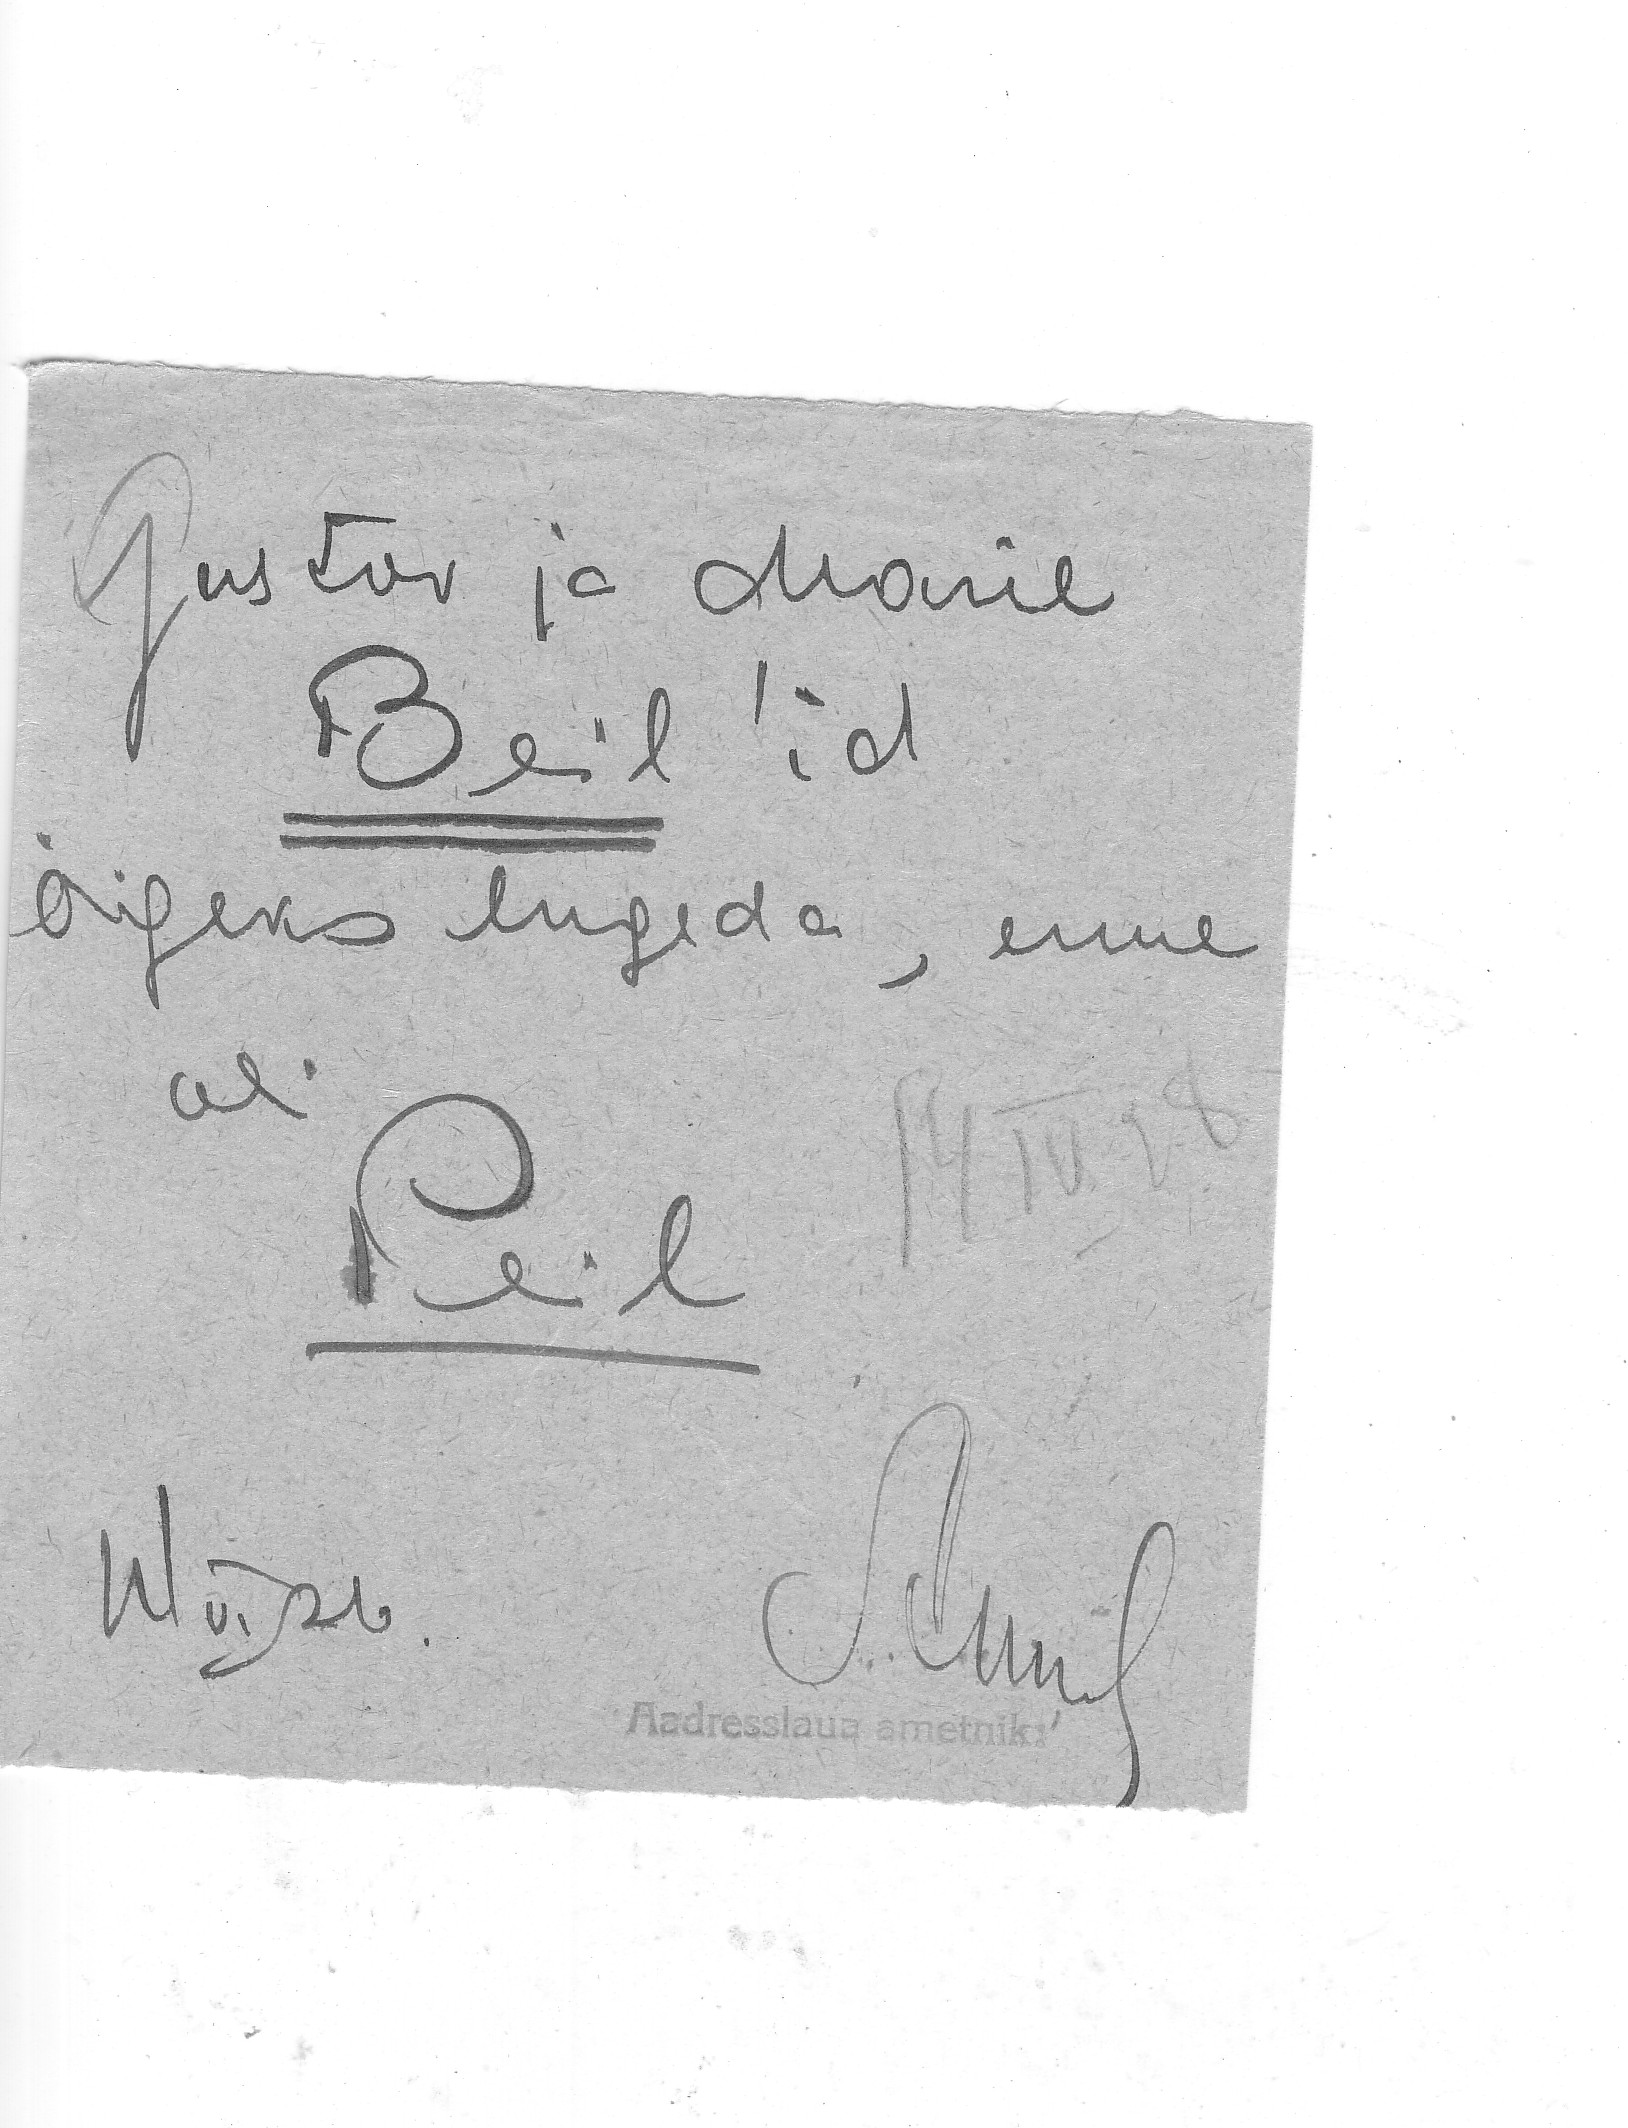 Gustav ja Marie
Beil'id
õigeks lugeda, enne
oli
Peil
Aadresslaua ametnik